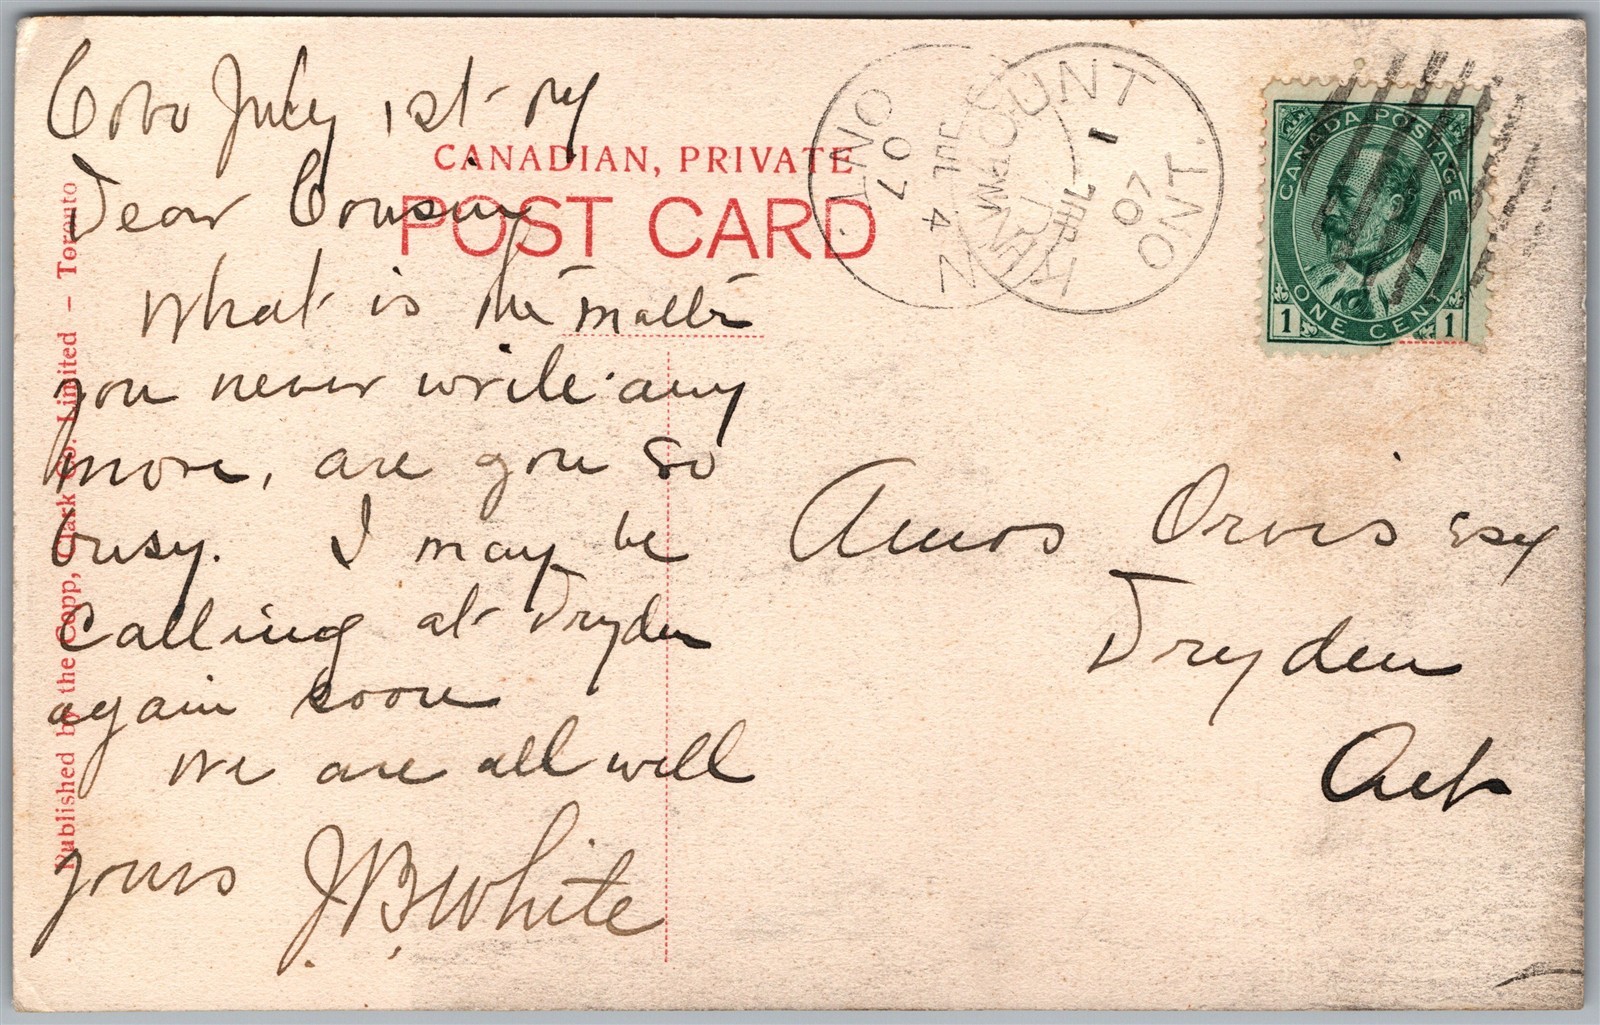 Cobo July 1st - 07
Dear Cousin
What is the matter
you never write any
more, are you so
busy. I may be
calling at Dryden
again soon
we are all well
yours J.B. White
CANADIAN, PRIVATE
POST CARD
Published by the Copp, Clark Co. Limited - Toronto
ONT.
JUL 4
07
MOUNT
ONT.
JUL 1
07
CANADA POSTAGE
1 ONE CENT 1
Amos Orvis Esq
Dryden
Ont